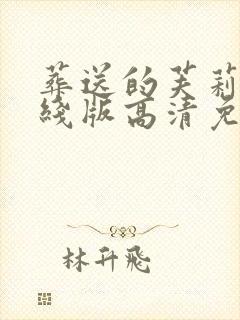 葬送的芙莉
线版高清免
林升飛